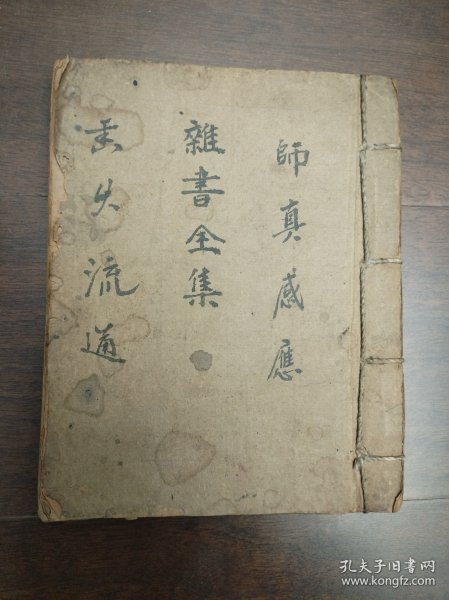 師真感應
雜書全集
失流通
孔夫子旧书网
www.kongfz.com